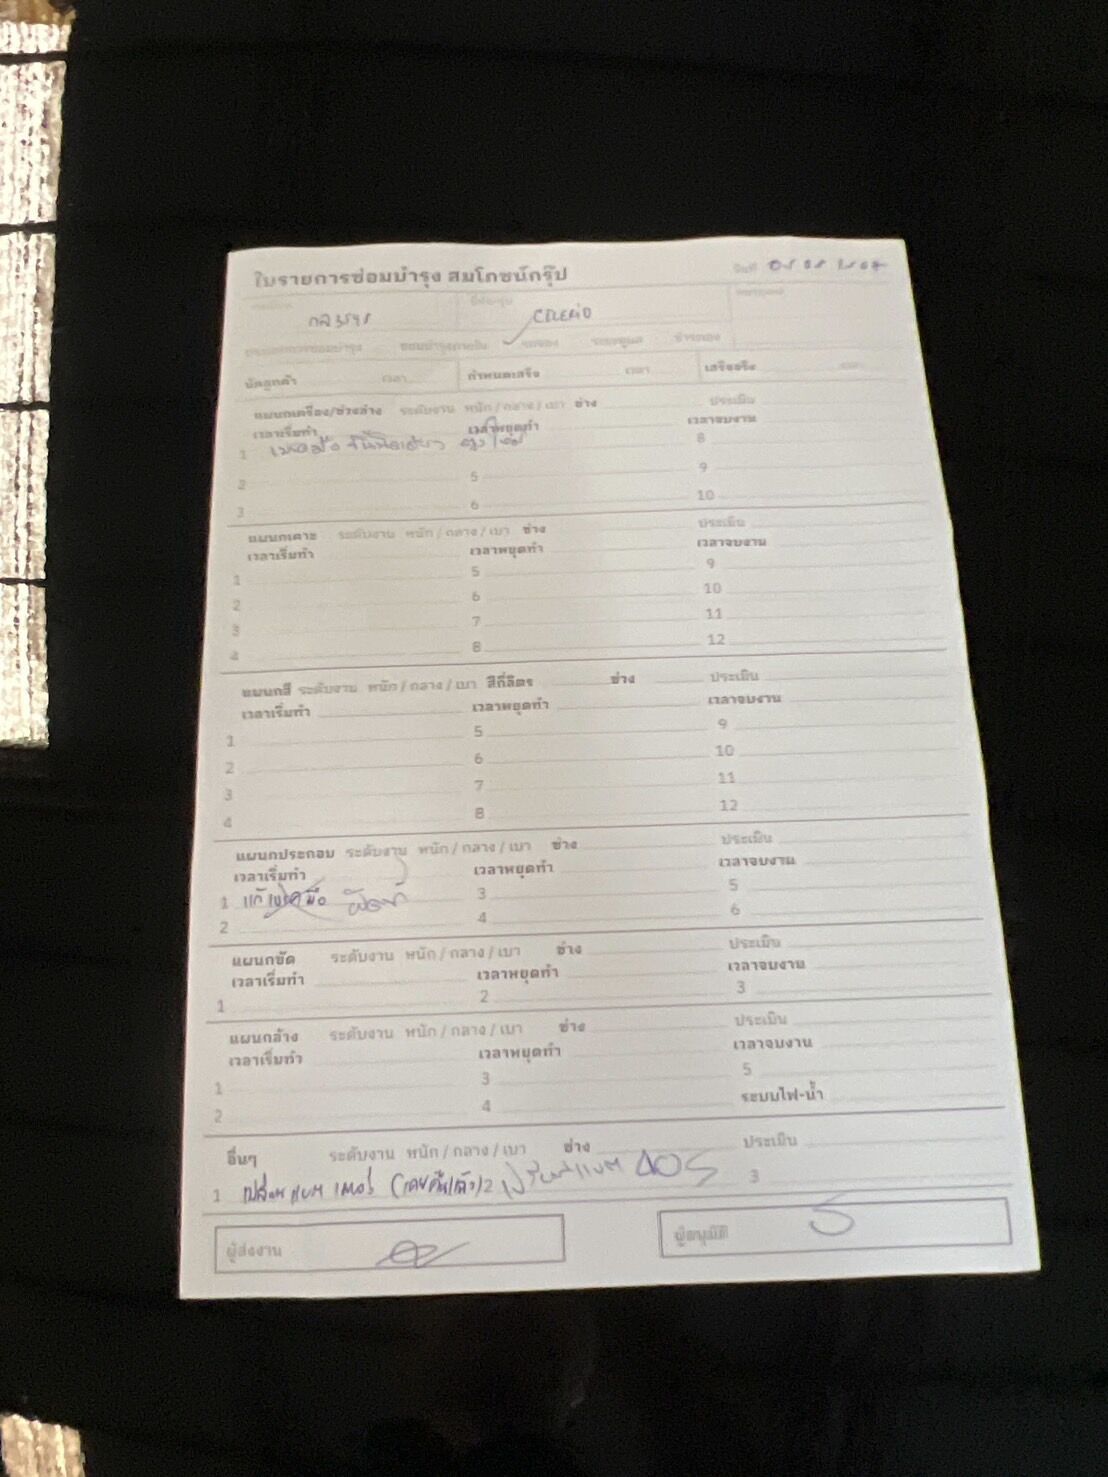 ใบรายการซ่อมบำรุง สมโภชน์กรุ๊ป วันที่
CELERIO
ซ่อมบำรุงภายใน รถจอง
นัดลูกค้า เวลา กำหนดเสร็จ เวลา เสร็จจริง เวลา
แผนกเครื่อง/ช่วงล่าง ระดับงาน หนัก / กลาง / เบา ช่าง ประเมิน
เวลาเริ่มทำ เวลาหยุดทำ เวลาจบงาน
1 เบรคมือ 8
2 5 9
3 6 10
แผนกเคาะ ระดับงาน หนัก / กลาง / เบา ช่าง ประเมิน
เวลาเริ่มทำ เวลาหยุดทำ เวลาจบงาน
1 5 9
2 6 10
3 7 11
4 8 12
แผนกสี ระดับงาน หนัก / กลาง / เบา สีกี่ลิตร ช่าง ประเมิน
เวลาเริ่มทำ เวลาหยุดทำ เวลาจบงาน
1 5 9
2 6 10
3 7 11
4 8 12
แผนกประกอบ ระดับงาน หนัก / กลาง / เบา ช่าง ประเมิน
เวลาเริ่มทำ เวลาหยุดทำ เวลาจบงาน
1 3 5
2 4 6
แผนกขัด ระดับงาน หนัก / กลาง / เบา ช่าง ประเมิน
เวลาเริ่มทำ เวลาหยุดทำ เวลาจบงาน
1 2 3
แผนกล้าง ระดับงาน หนัก / กลาง / เบา ช่าง ประเมิน
เวลาเริ่มทำ เวลาหยุดทำ เวลาจบงาน
1 3 5
2 4 ระบบไฟ-น้ำ
อื่นๆ ระดับงาน หนัก / กลาง / เบา ช่าง ประเมิน
1 เปลี่ยนแบต 2 เปลี่ยนแบต 3
ผู้ส่งงาน ผู้อนุมัติ